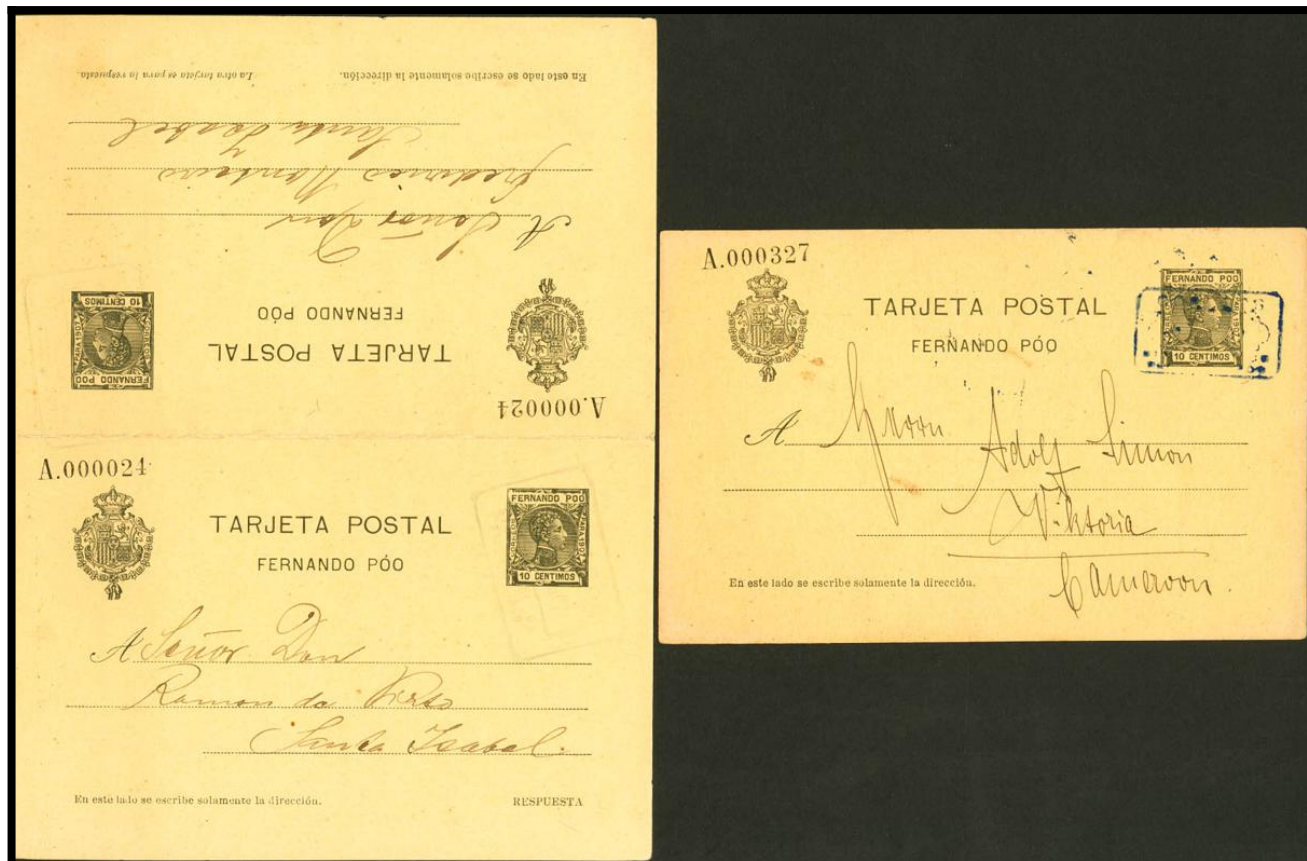 En este lado se escribe solamente la dirección.
La otra tarjeta es para la respuesta
A Señor Don
Federico
Santa Isabel
TARJETA POSTAL
FERNANDO PÓO
FERNANDO POO
10 CENTIMOS
A.000024
A.000024
TARJETA POSTAL
FERNANDO PÓO
FERNANDO POO
10 CENTIMOS
A Señor Don
Ramon da
Santa Isabel.
En este lado se escribe solamente la dirección.
RESPUESTA
A.000327
TARJETA POSTAL
FERNANDO PÓO
FERNANDO POO
10 CENTIMOS
A Herrn Adolf Simon
Viktoria
Cameroon.
En este lado se escribe solamente la dirección.